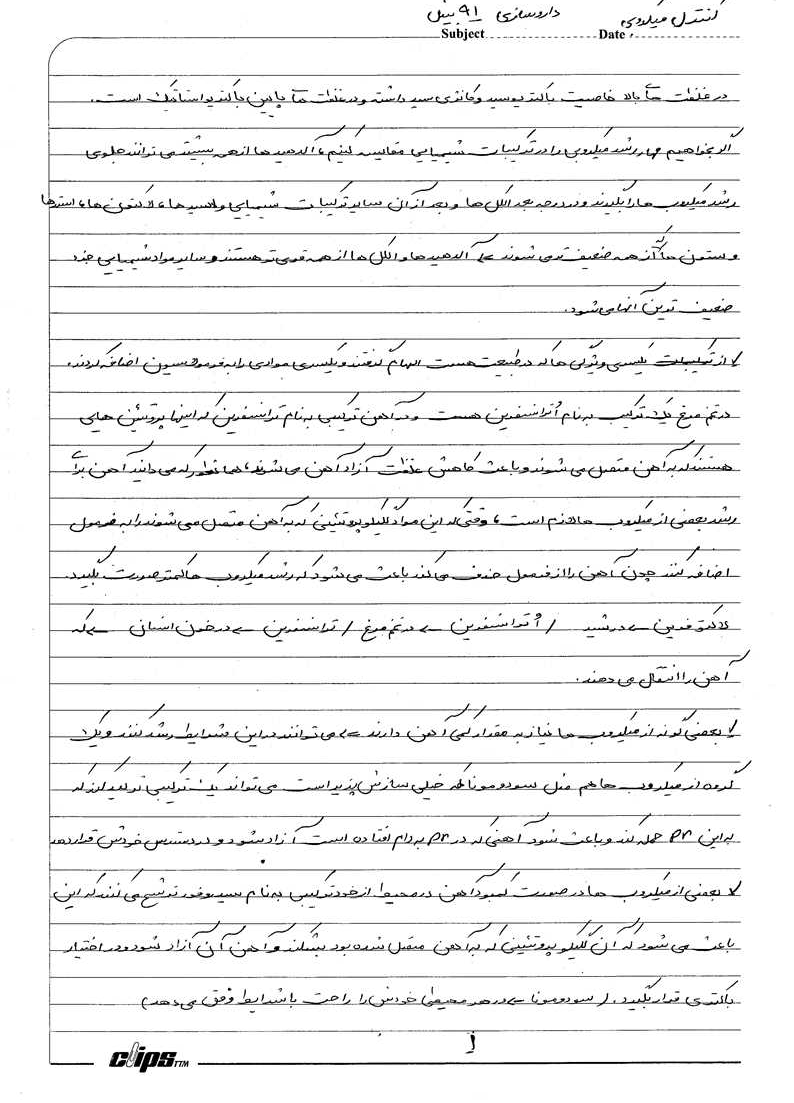 کنترل میکروبی داروسازی ۹۱ بیل
Subject Date
در غلظت های بالا خاصیت باکتریوسید و کاندی سید داشته و در غلظت های پایین باکتریواستاتیک است.
اگر بخواهیم مهار رشد میکروبی را در ترکیبات شیمیایی مقایسه کنیم، آلدهیدها از همه بیشتر می توانند جلوی
رشد میکروب ها را بگیرند و در درجه بعد الکل ها و بعد از آن سایر ترکیبات شیمیایی و اسیدها، لاکتون ها، استرها
و ستون ها که از همه ضعیف تر می شوند ← آلدهیدها و الکل ها از همه قوی تر هستند و سایر مواد شیمیایی جزء
ضعیف ترین آنها می شود.
✓ از ترکیبات یکسری ویژگی ها که در طبیعت هست الهام گرفتند و یکسری موادی را به فرمولاسیون اضافه کردند.
در تخم مرغ یک ترکیب به نام اُترانسفرین هست و در آهن ترکیبی به نام ترانسفرین که اینها پروتئین هایی
هستند که به آهن متصل می شوند و باعث کاهش غلظت آزاد آهن می شوند، همانطور که می دانید آهن برای
رشد بعضی از میکروب ها لازم است، وقتی که این مواد گلیکوپروتئینی که به آهن متصل می شوند را به فرمول
اضافه کنند چون آهن را از فرمول حذف می کند باعث می شود که رشد میکروب ها کمتر صورت بگیرد.
لاکتوفرین ← در شیر / اُترانسفرین ← در تخم مرغ / ترانسفرین ← در خون انسان ← که
آهن را انتقال می دهند.
✓ بعضی گونه از میکروب ها نیاز به مقدار کمی آهن دارند ← می توانند در این شرایط رشد کنند و یک
گروه از میکروب ها هم مثل سودوموناها که خیلی سازش پذیر است می تواند یک ترکیبی تولید کند که
به این pr حمله کند و باعث شود آهنی که در pr به دام افتاده است آزاد شود و در دسترس خودش قرار دهد
✓ بعضی از میکروب ها در صورت کمبود آهن در محیط از خود ترکیبی به نام سیدوفور ترشح می کنند که این
باعث می شود که آن گلیکوپروتئینی که به آهن متصل شده بود بشکند و آهن آن آزاد شود و در اختیار
باکتری قرار بگیرد. (سودومونا ← در هر محیطی خودش را راحت با شرایط وفق می دهد)
۱
clips TTM